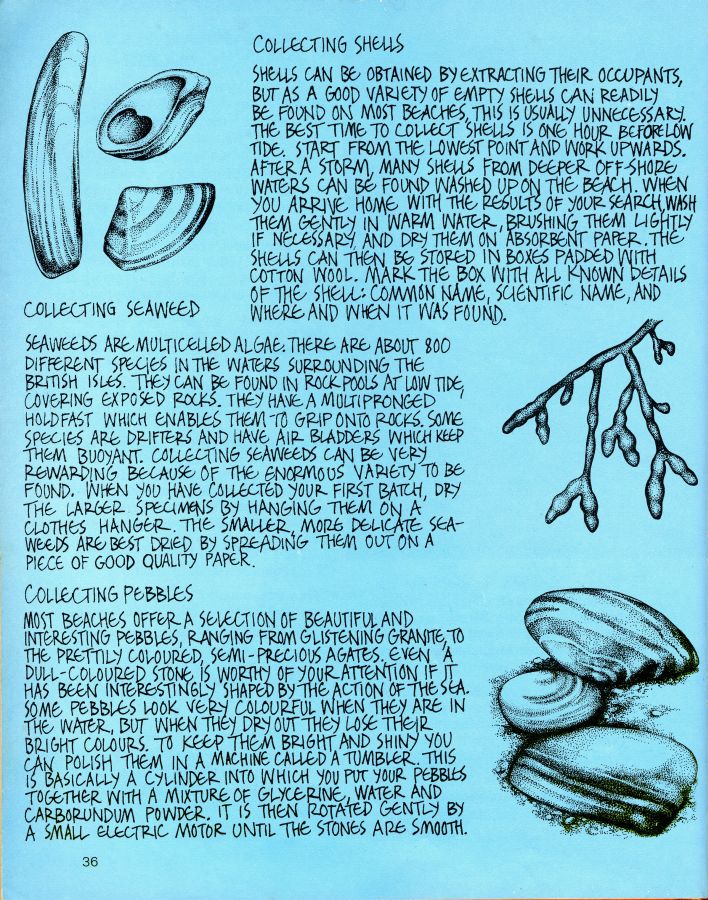 COLLECTING SHELLS
SHELLS CAN BE OBTAINED BY EXTRACTING THEIR OCCUPANTS,
BUT AS A GOOD VARIETY OF EMPTY SHELLS CAN READILY
BE FOUND ON MOST BEACHES, THIS IS USUALLY UNNECESSARY.
THE BEST TIME TO COLLECT SHELLS IS ONE HOUR BEFORE LOW
TIDE. START FROM THE LOWEST POINT AND WORK UPWARDS.
AFTER A STORM, MANY SHELLS FROM DEEPER OFF-SHORE
WATERS CAN BE FOUND WASHED UP ON THE BEACH. WHEN
YOU ARRIVE HOME WITH THE RESULTS OF YOUR SEARCH, WASH
THEM GENTLY IN WARM WATER, BRUSHING THEM LIGHTLY
IF NECESSARY, AND DRY THEM ON ABSORBENT PAPER. THE
SHELLS CAN THEN BE STORED IN BOXES PADDED WITH
COTTON WOOL. MARK THE BOX WITH ALL KNOWN DETAILS
OF THE SHELL: COMMON NAME, SCIENTIFIC NAME, AND
WHERE AND WHEN IT WAS FOUND.
COLLECTING SEAWEED
SEAWEEDS ARE MULTICELLED ALGAE. THERE ARE ABOUT 800
DIFFERENT SPECIES IN THE WATERS SURROUNDING THE
BRITISH ISLES. THEY CAN BE FOUND IN ROCK POOLS AT LOW TIDE,
COVERING EXPOSED ROCKS. THEY HAVE A MULTIPRONGED
HOLDFAST WHICH ENABLES THEM TO GRIP ONTO ROCKS. SOME
SPECIES ARE DRIFTERS AND HAVE AIR BLADDERS WHICH KEEP
THEM BUOYANT. COLLECTING SEAWEEDS CAN BE VERY
REWARDING BECAUSE OF THE ENORMOUS VARIETY TO BE
FOUND. WHEN YOU HAVE COLLECTED YOUR FIRST BATCH, DRY
THE LARGER SPECIMENS BY HANGING THEM ON A
CLOTHES HANGER. THE SMALLER, MORE DELICATE SEA-
WEEDS ARE BEST DRIED BY SPREADING THEM OUT ON A
PIECE OF GOOD QUALITY PAPER.
COLLECTING PEBBLES
MOST BEACHES OFFER A SELECTION OF BEAUTIFUL AND
INTERESTING PEBBLES, RANGING FROM GLISTENING GRANITE, TO
THE PRETTILY COLOURED, SEMI-PRECIOUS AGATES. EVEN A
DULL-COLOURED STONE IS WORTHY OF YOUR ATTENTION IF IT
HAS BEEN INTERESTINGLY SHAPED BY THE ACTION OF THE SEA.
SOME PEBBLES LOOK VERY COLOURFUL WHEN THEY ARE IN
THE WATER, BUT WHEN THEY DRY OUT THEY LOSE THEIR
BRIGHT COLOURS. TO KEEP THEM BRIGHT AND SHINY YOU
CAN POLISH THEM IN A MACHINE CALLED A TUMBLER. THIS
IS BASICALLY A CYLINDER INTO WHICH YOU PUT YOUR PEBBLES
TOGETHER WITH A MIXTURE OF GLYCERINE, WATER AND
CARBORUNDUM POWDER. IT IS THEN ROTATED GENTLY BY
A SMALL ELECTRIC MOTOR UNTIL THE STONES ARE SMOOTH.
36